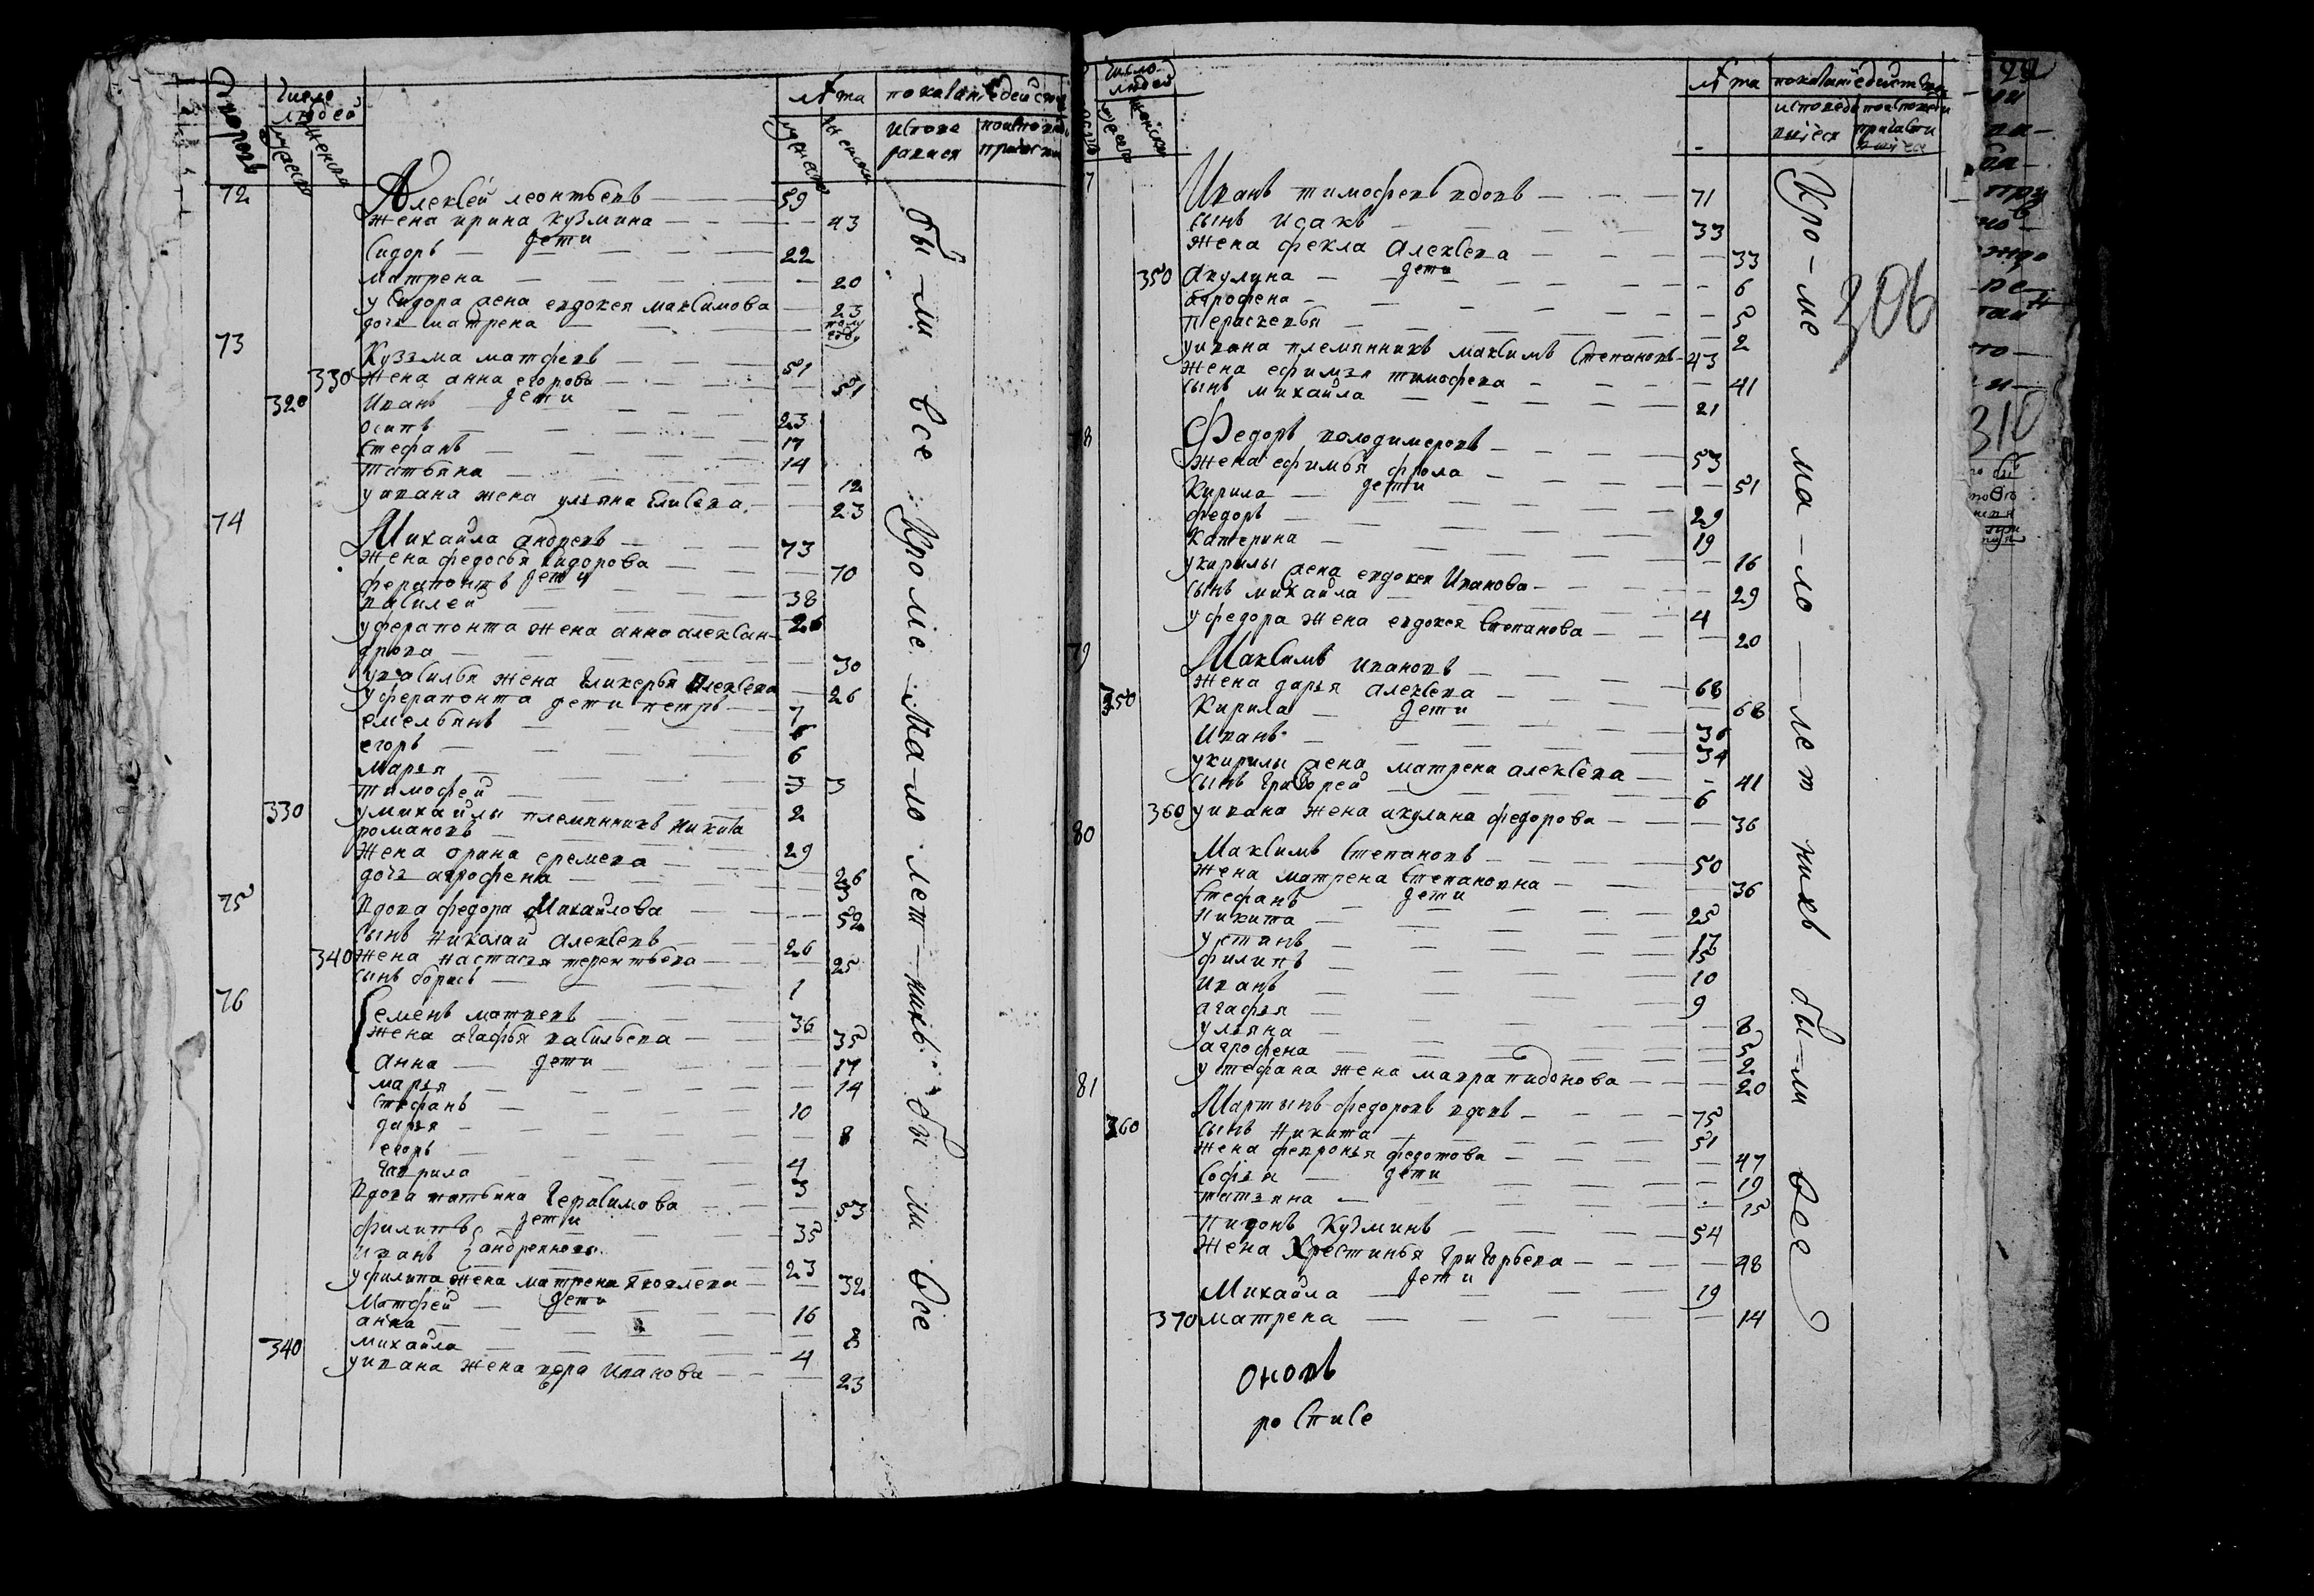 дворовъ
число людей
мужеска
женска
лѣта
показание действ
мужеска
женска
исповедалися
72 Алексей леонтьевъ 59
жена ирина кузмина 43
дети
Сидоръ 22
матрена 20
у Сидора жена евдокея максимова 23
дочь матрена полугоду
73 Кузьма матфевъ 51
330 жена анна егорова 51
дети
320 Иванъ 23
осипъ 17
стефанъ 14
татьяна 12
у ивана жена ульяна Елисева 23
74 Михаила андревъ 73
жена федосья сидорова 70
дети
ферапонтъ 38
василей 26
у ферапонта жена анна алексан
дрова 30
у василья жена гликерья алексева 26
у ферапонта дети петръ 7
емельянъ 6
егоръ 6
марья 3
тимофей 3
330 у михайлы племянникъ никита 2
романовъ 29
жена орина еремева 26
дочь агрофена 3
75 вдова федора Михаилова 52
сынъ николай алексевъ 26
340 жена настасья терентьева 25
сынъ борисъ 1
76 Семенъ матвевъ 36
жена агафья васильева 35
дети
анна 17
марья 14
стефанъ 10
дарья 8
егоръ 4
гаврило 3
вдова татьяна герасимова 53
дети
филипъ 35
иванъ андреиновы 23
у филипа жена матрена яковлева 32
дети
матфей 16
анна 8
340 михаила 4
у ивана жена вера иванова 23
бы-ли все кроме ма-ло лет-нихъ бы ли все
число людей
мужеска
женска
лѣта
показание действ
исповедавшиеся
причастившиеся
7 Иванъ тимофевъ вдовъ 71
сынъ исакъ 33
жена фекла алексева 33
дети
350 акулина 6
агрофена 5
перасковья 2
у ивана племянникъ максимъ степановъ 43
жена ефимья тимофева 41
сынъ михаила 21
78 Федоръ володимеровъ 53
жена ефимья фрола 51
дети
Кирила 29
федоръ 19
катерина 16
у кирилы жена евдокея Иванова 29
сынъ михаила 4
у федора жена евдокея степанова 20
79 Максимъ ивановъ 68
жена дарья алексева 68
дети
350 Кирила 36
иванъ 34
у кирилы жена матрена алексева 41
сынъ григорей 6
360 у ивана жена акулина федорова 36
80 Максимъ степановъ 50
жена матрена степановна 36
дети
стефанъ 25
никита 17
устинъ 15
филипъ 10
иванъ 9
агафья 8
ульяна 5
агрофена 2
у стефана жена мавра пидонова 20
81 Мартынъ федоровъ вдовъ 75
360 сынъ никита 51
жена февронья федотова 47
дети
софья 19
татьяна 15
пидонъ кузминъ 54
жена Хрестинья григорьева 48
дети
Михаила 19
370 матрена 14
оновъ
росписе
Кро-ме ма-ло-лет нихъ бы-ли все
306
310